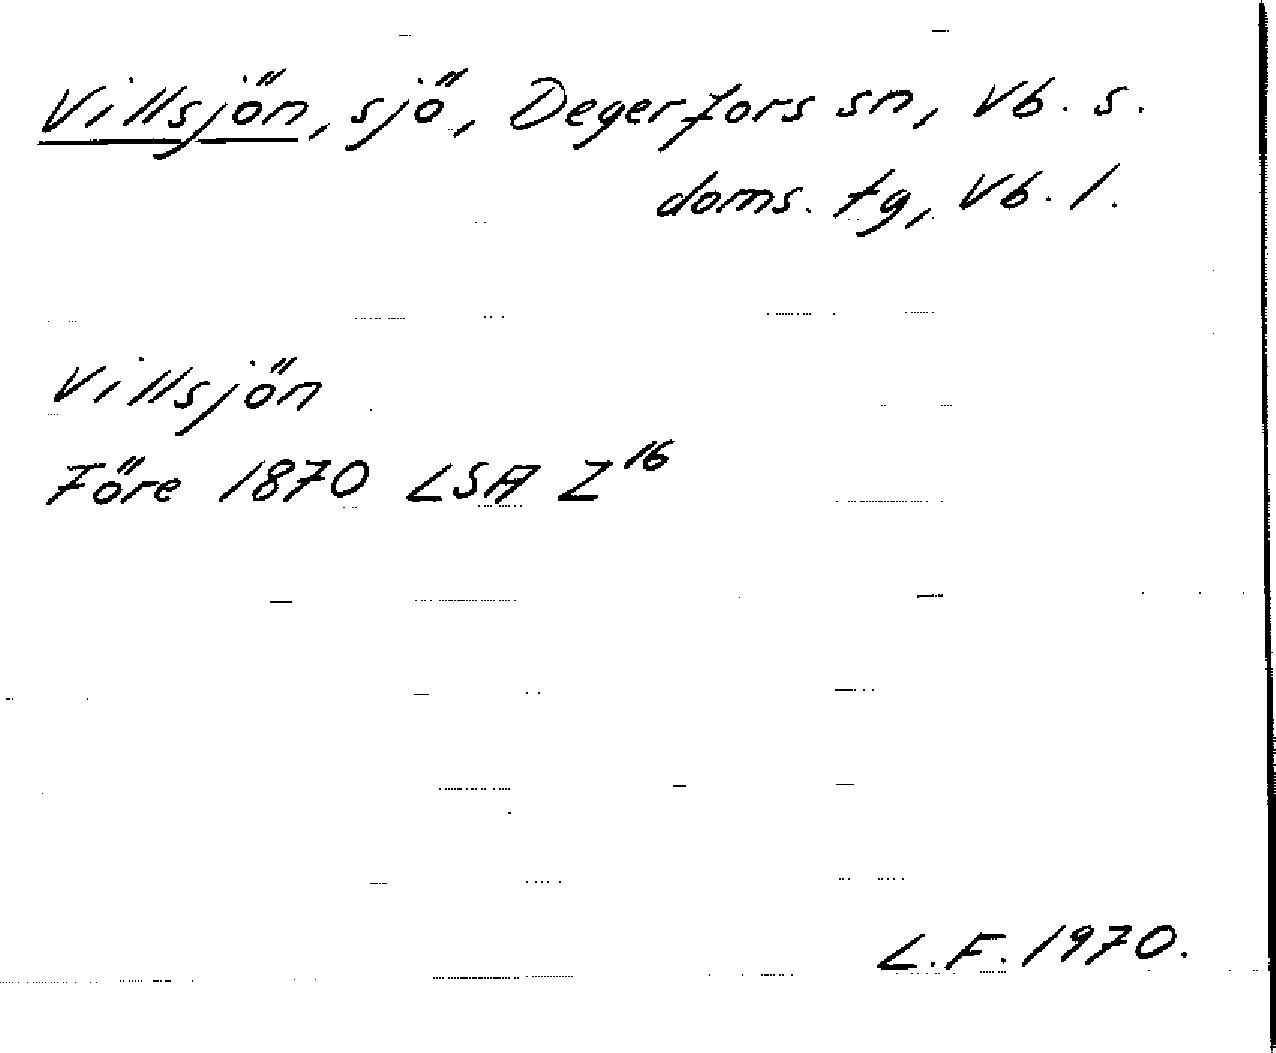 Villsjön, sjö, Degerfors sn, Vb. s.
doms. tg, Vb. l.
Villsjön
Före 1870 LSA Z¹⁶
L.F. 1970.